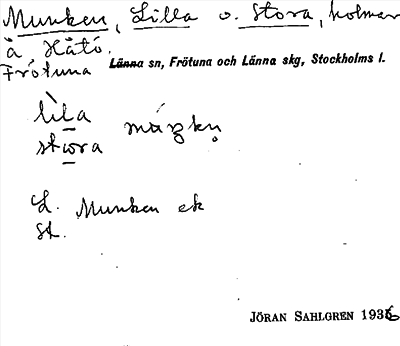 Munken, Lilla o. Stora, holmar
å Håtö.
Frötuna Länna sn, Frötuna och Länna skg, Stockholms l.
lìla
stora
L. Munken ek
St.
JÖRAN SAHLGREN 1936